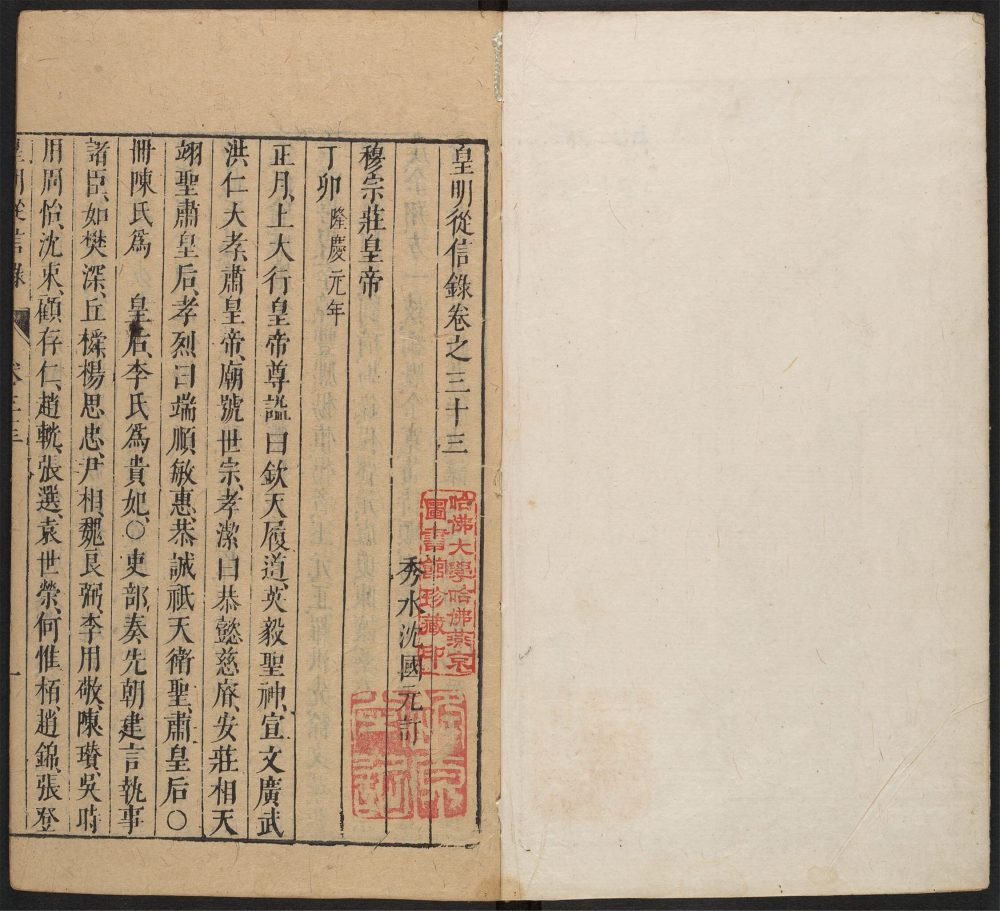 皇明從信錄卷之三十三
秀水沈國元訂
哈佛大學哈佛燕京
圖書館珍藏印
穆宗莊皇帝
丁卯隆慶元年
正月、上大行皇帝尊謚曰欽天履道、英毅聖神、宣文廣武
洪仁大孝、肅皇帝、廟號世宗、孝潔曰恭懿慈睿、安莊相天
翊聖肅皇后、孝烈曰端順敏惠、恭誠祇天衛聖、肅皇后、○
冊陳氏爲 皇后、李氏爲貴妃、○吏部奏先朝建言執事
諸臣、如樊深、丘橓、楊思忠、尹相、魏良弼、李用敬、陳瓚、吳時
用周怡、沈束、顧存仁、趙輄、張選、袁世榮、何惟栢、趙錦、張登
皇明從信錄 卷三十三 一